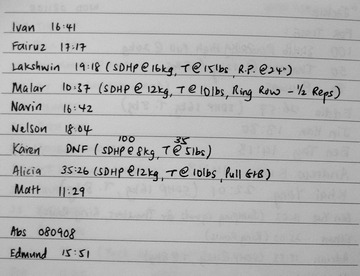 Ivan 16:41
Fairuz 17:17
Lakshwin 19:18 (SDHP @ 16kg, T @ 15lbs, R.P. @ 24")
Malar 10:37 (SDHP @ 12kg, T @ 10lbs, Ring Row - 1/2 Reps)
Navin 16:42
Nelson 18:04
100 35
Karen DNF (SDHP @ 8kg, T @ 5lbs)
Alicia 35:26 (SDHP @ 12kg, T @ 10lbs, Pull G+B)
Matt 11:29
Abs 080908
Edmund 15:51